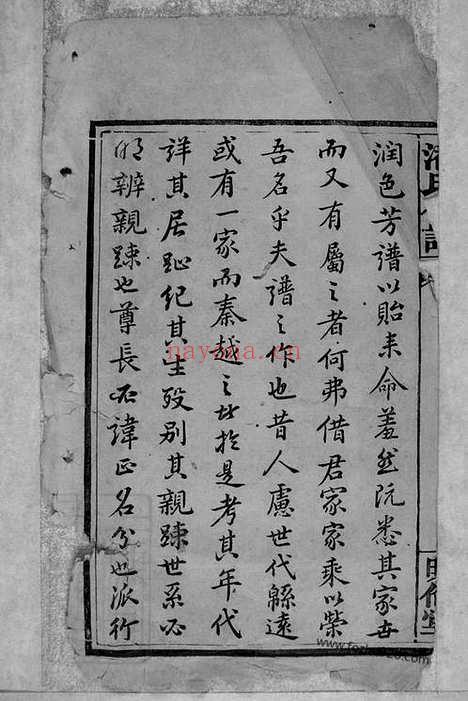 潤色芳譜以貽来命羞然沅悉其家世
而又有屬之者何弗借君家家乘以榮
吾名乎夫譜之作也昔人慮世代緜遠
或有一家而秦越之者於是考其年代
詳其居址紀其生殁别其親踈世系必
明辨親踈也尊長必諱正名分也派行
nayona.cn